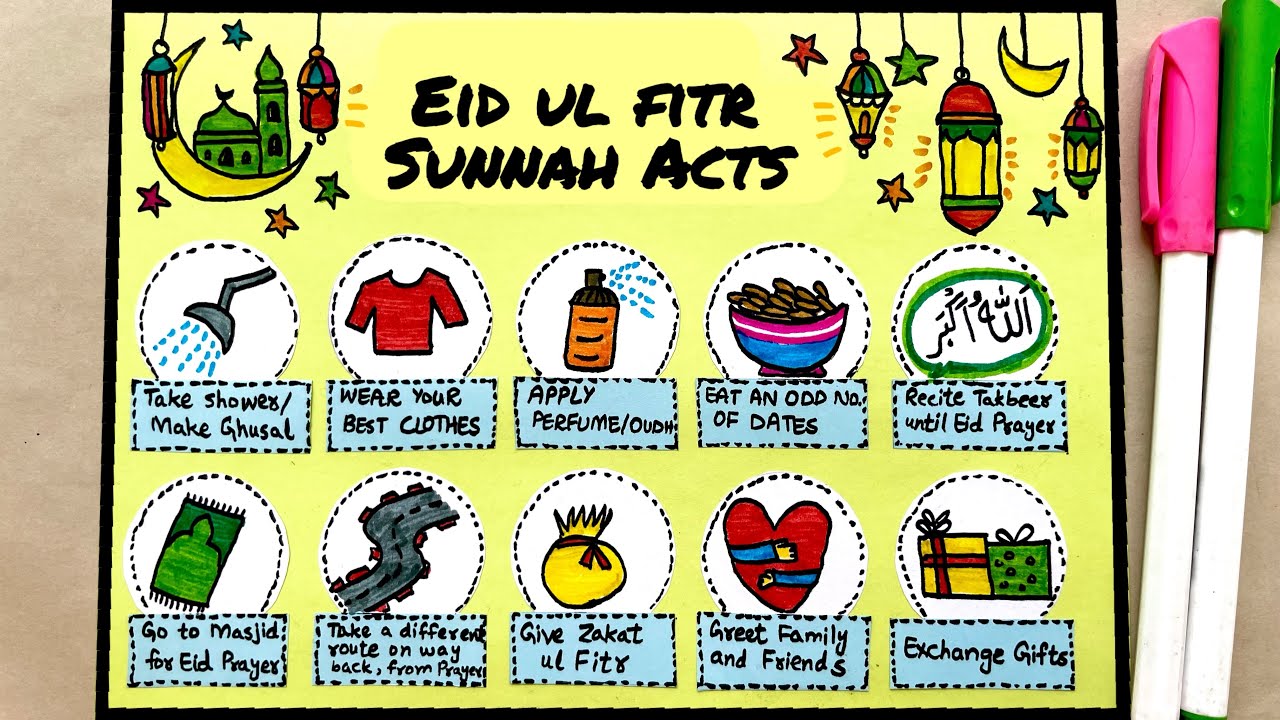 Eid ul fitr
Sunnah Acts
Take shower/
Make Ghusal
WEAR YOUR
BEST CLOTHES
APPLY
PERFUME/OUDH
EAT AN ODD NO.
OF DATES
اَللّٰهُ اَكْبَرَ
Recite Takbeer
until Eid Prayer
Go to Masjid
for Eid Prayer
Take a different
route on way
back, from Prayer
Give Zakat
ul Fitr
Greet Family
and Friends
Exchange Gifts